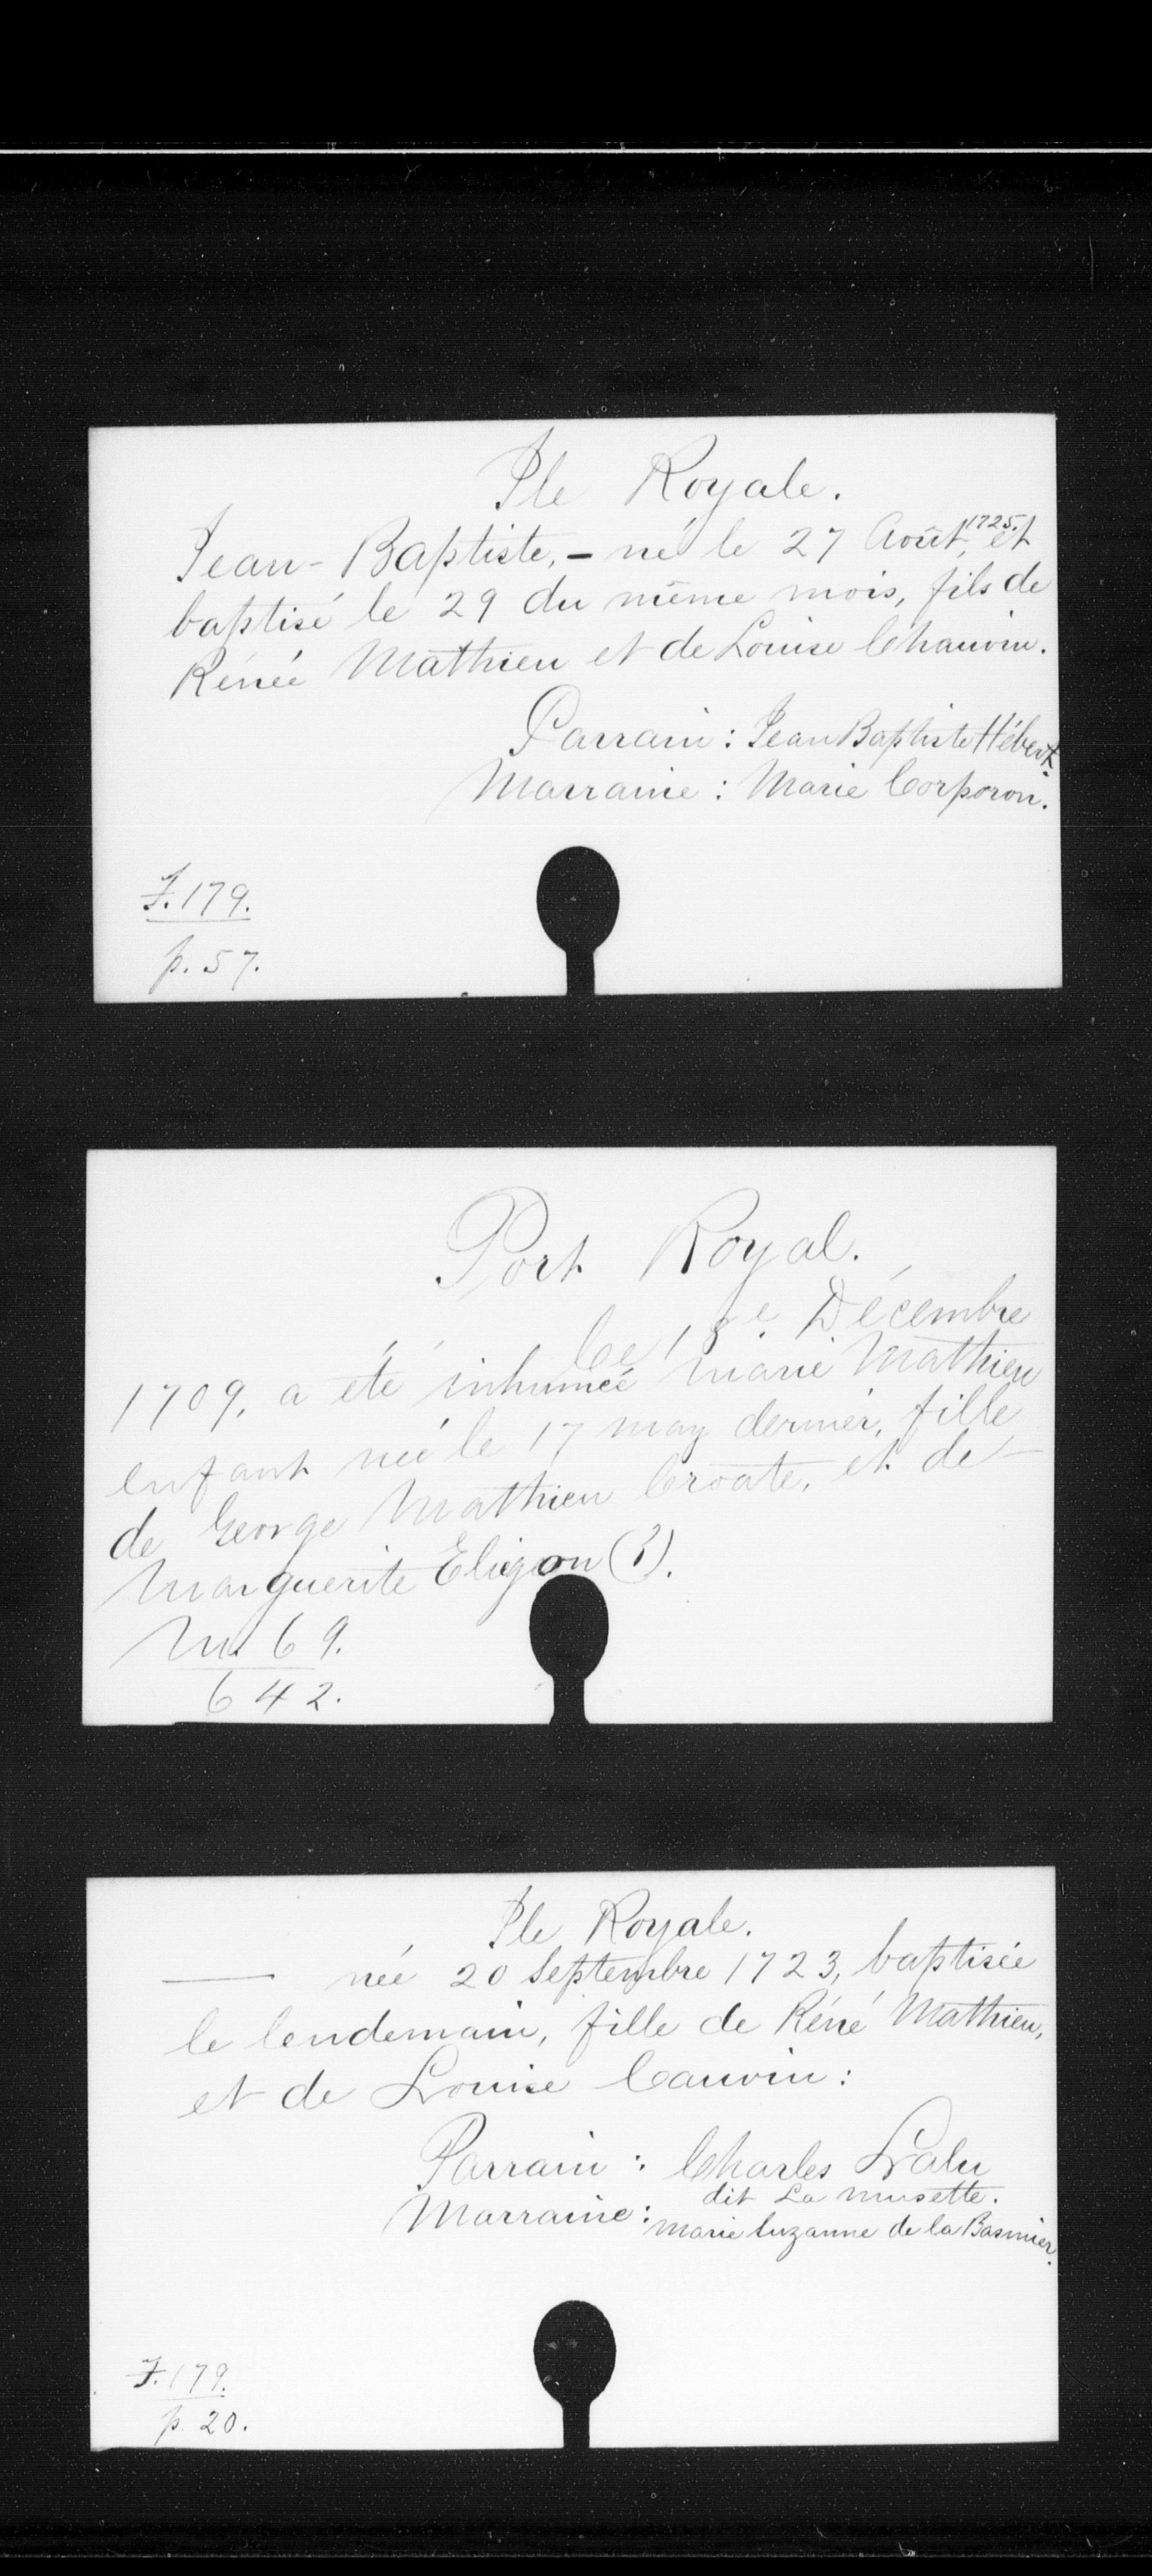 Ile Royale.
Jean-Baptiste, - né le 27 Août, 1725. et
baptisé le 29 du même mois, fils de
Rénée Mathieu et de Louise Chauvin.
Parrain : Jean Baptiste Hébert.
Marraine : Marie Corporon.
F. 179.
p. 57.
Port Royal.
Ce 18e. Décembre
1709, a été inhumée Marie Mathieu
enfant née le 17 may dernier, fille
de George Mathieu Croate, et de
Marguerite Eligon (?).
M. 69.
642.
Ile Royale.
— née 20 Septembre 1723, baptisée
le lendemain, fille de Réné Mathieu,
et de Louise Cauvin :
Parrain : Charles Lalu
dit La musette.
Marraine : Marie Suzanne de la Basmier.
F. 179.
p. 20.